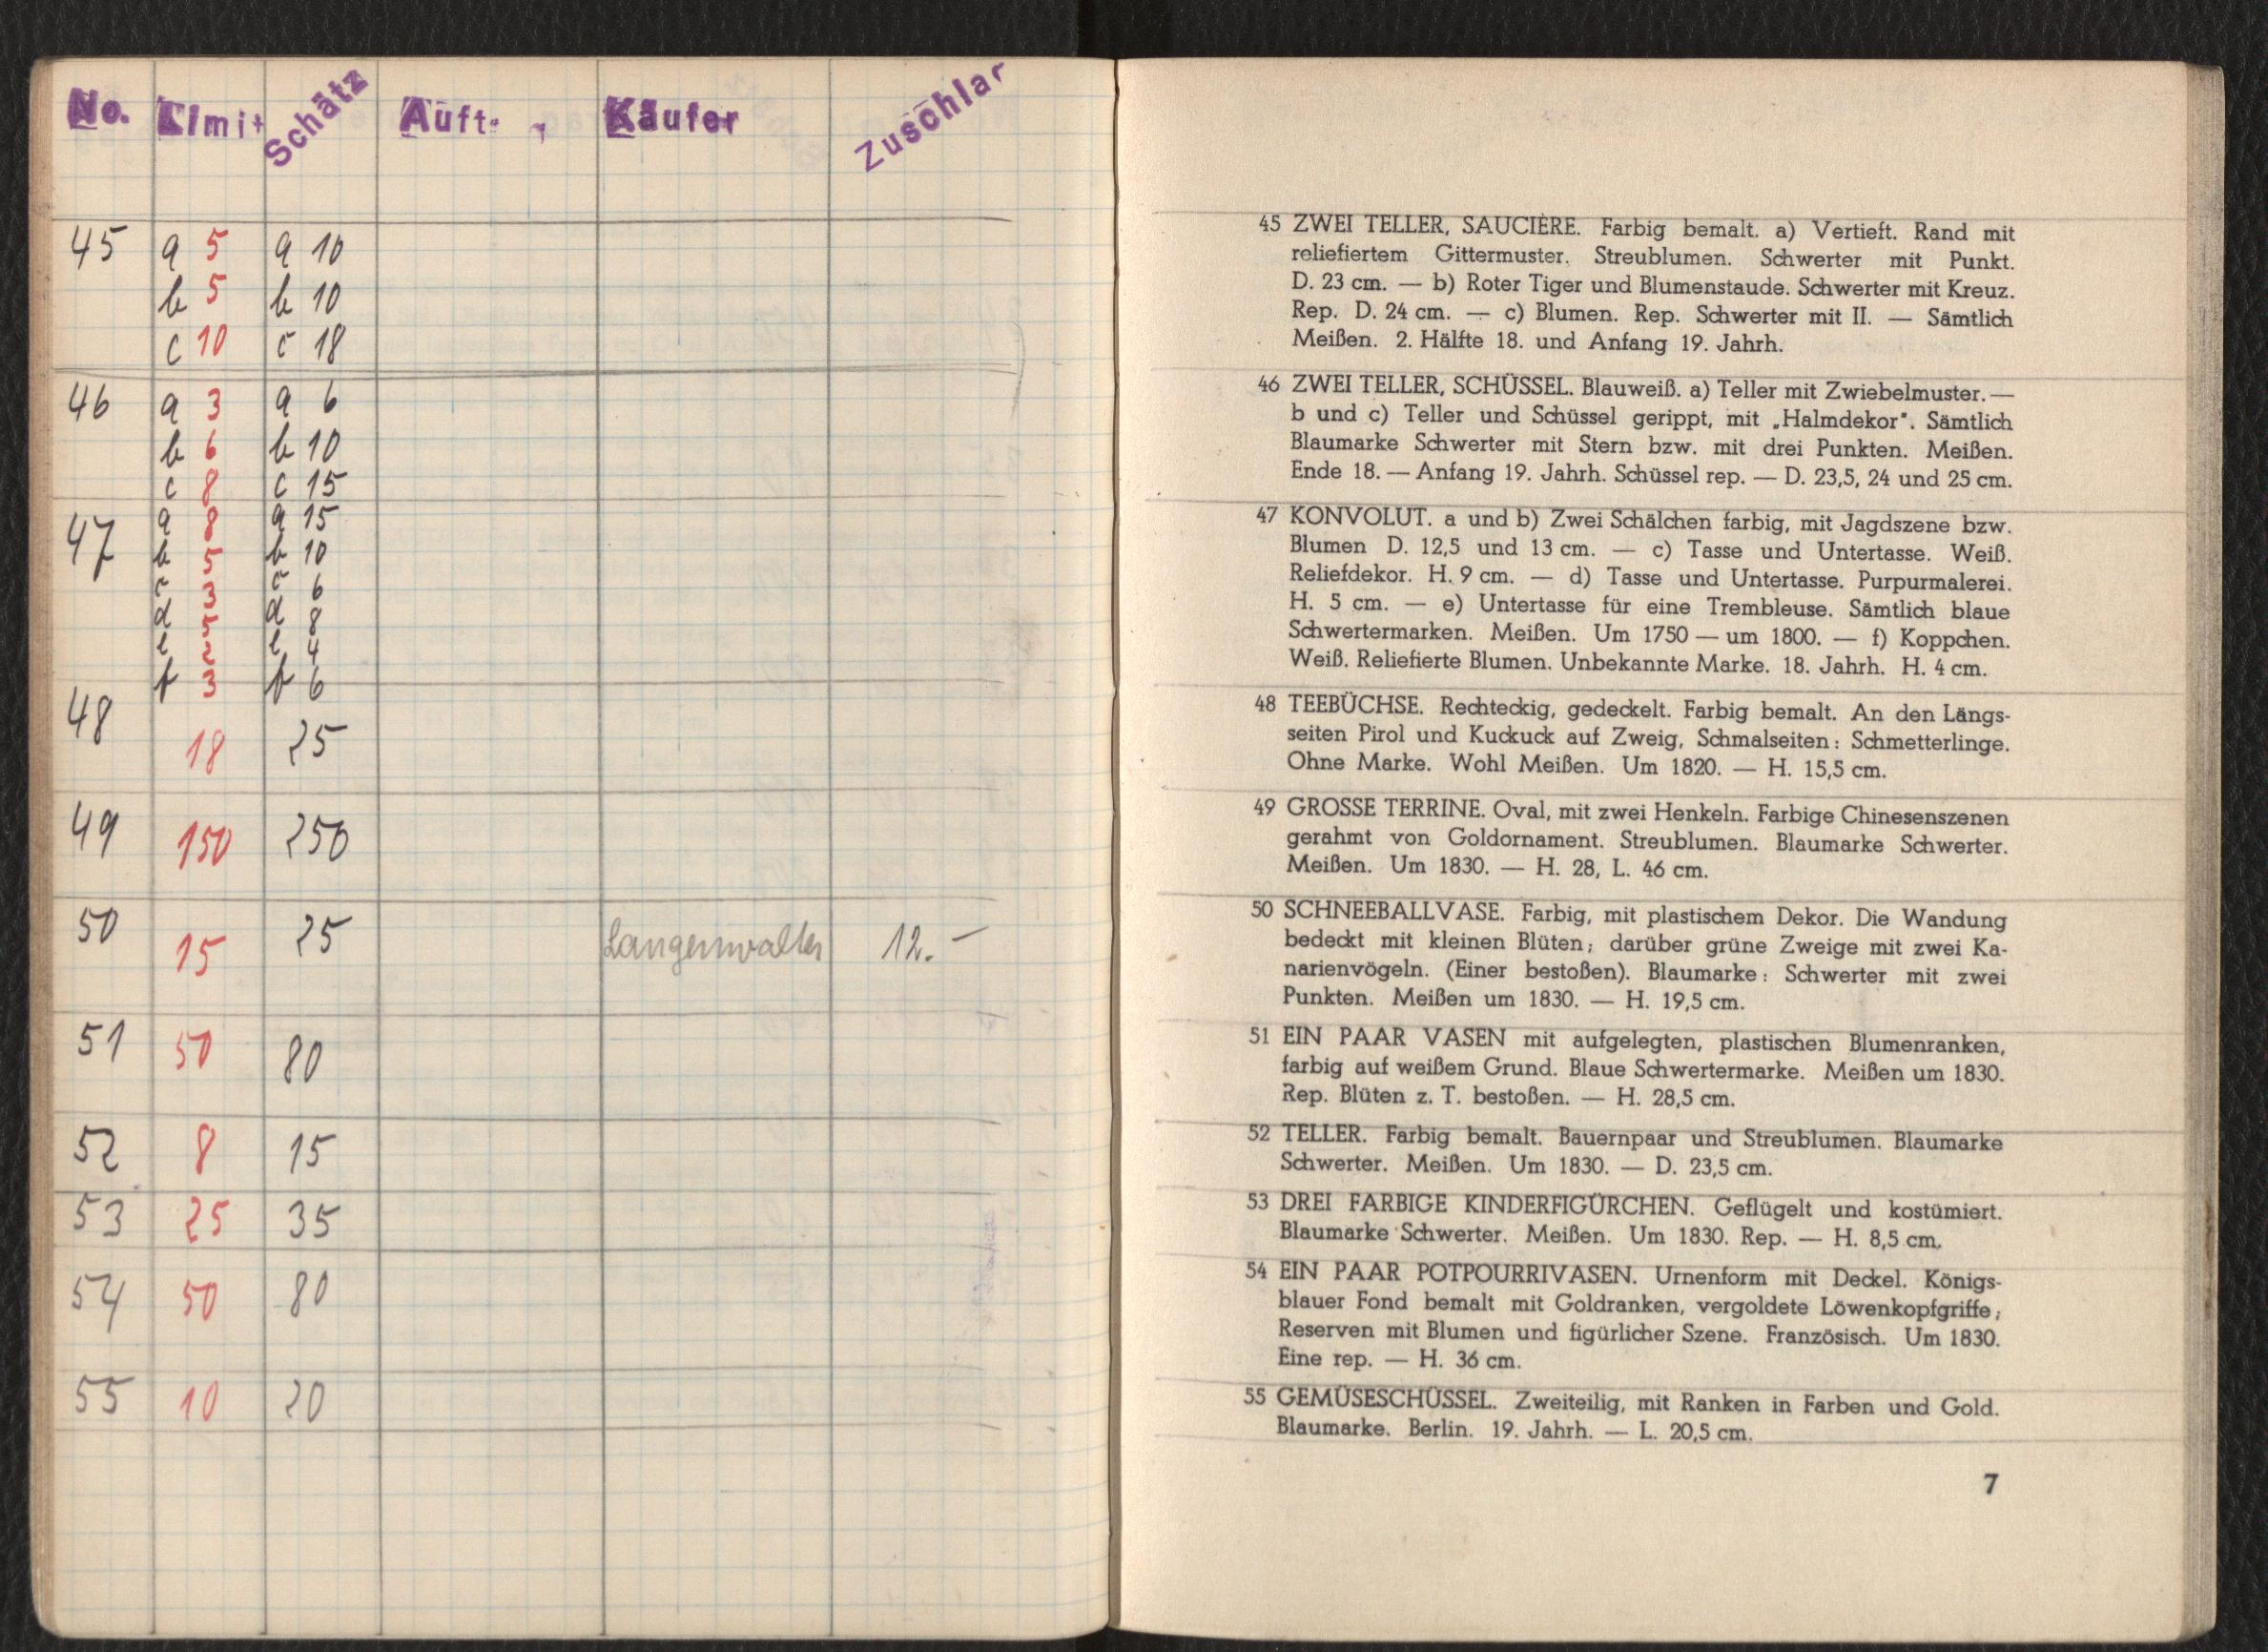 No. Limit Schätz Auft. Käufer Zuschlag
45 a 5 a 10
b 5 b 10
c 10 c 18
46 a 3 a 6
b 6 b 10
c 8 c 15
47 a 8 a 15
b 5 b 10
c 3 c 6
d d 8
e 2 e 4
f 3 f 6
48
18 25
49 150 250
50 15 25 Langenwalter 12.—
51 50 80
52 8 15
53 25 35
54 50 80
55 10 20
45 ZWEI TELLER, SAUCIÈRE. Farbig bemalt. a) Vertieft. Rand mit
reliefiertem Gittermuster. Streublumen. Schwerter mit Punkt.
D. 23 cm. — b) Roter Tiger und Blumenstaude. Schwerter mit Kreuz.
Rep. D. 24 cm. — c) Blumen. Rep. Schwerter mit II. — Sämtlich
Meißen. 2. Hälfte 18. und Anfang 19. Jahrh.
46 ZWEI TELLER, SCHÜSSEL. Blauweiß. a) Teller mit Zwiebelmuster. —
b und c) Teller und Schüssel gerippt, mit „Halmdekor". Sämtlich
Blaumarke Schwerter mit Stern bzw. mit drei Punkten. Meißen.
Ende 18. — Anfang 19. Jahrh. Schüssel rep. — D. 23,5, 24 und 25 cm.
47 KONVOLUT. a und b) Zwei Schälchen farbig, mit Jagdszene bzw.
Blumen D. 12,5 und 13 cm. — c) Tasse und Untertasse. Weiß.
Reliefdekor. H. 9 cm. — d) Tasse und Untertasse. Purpurmalerei.
H. 5 cm. — e) Untertasse für eine Trembleuse. Sämtlich blaue
Schwertermarken. Meißen. Um 1750 — um 1800. — f) Koppchen.
Weiß. Reliefierte Blumen. Unbekannte Marke. 18. Jahrh. H. 4 cm.
48 TEEBÜCHSE. Rechteckig, gedeckelt. Farbig bemalt. An den Längs-
seiten Pirol und Kuckuck auf Zweig, Schmalseiten: Schmetterlinge.
Ohne Marke. Wohl Meißen. Um 1820. — H. 15,5 cm.
49 GROSSE TERRINE. Oval, mit zwei Henkeln. Farbige Chinesenszenen
gerahmt von Goldornament. Streublumen. Blaumarke Schwerter.
Meißen. Um 1830. — H. 28, L. 46 cm.
50 SCHNEEBALLVASE. Farbig, mit plastischem Dekor. Die Wandung
bedeckt mit kleinen Blüten; darüber grüne Zweige mit zwei Ka-
narienvögeln. (Einer bestoßen). Blaumarke: Schwerter mit zwei
Punkten. Meißen um 1830. — H. 19,5 cm.
51 EIN PAAR VASEN mit aufgelegten, plastischen Blumenranken,
farbig auf weißem Grund. Blaue Schwertermarke. Meißen um 1830.
Rep. Blüten z. T. bestoßen. — H. 28,5 cm.
52 TELLER. Farbig bemalt. Bauernpaar und Streublumen. Blaumarke
Schwerter. Meißen. Um 1830. — D. 23,5 cm.
53 DREI FARBIGE KINDERFIGÜRCHEN. Geflügelt und kostümiert.
Blaumarke Schwerter. Meißen. Um 1830. Rep. — H. 8,5 cm.
54 EIN PAAR POTPOURRIVASEN. Urnenform mit Deckel. Königs-
blauer Fond bemalt mit Goldranken, vergoldete Löwenkopfgriffe;
Reserven mit Blumen und figürlicher Szene. Französisch. Um 1830.
Eine rep. — H. 36 cm.
55 GEMÜSESCHÜSSEL. Zweiteilig, mit Ranken in Farben und Gold.
Blaumarke. Berlin. 19. Jahrh. — L. 20,5 cm.
7